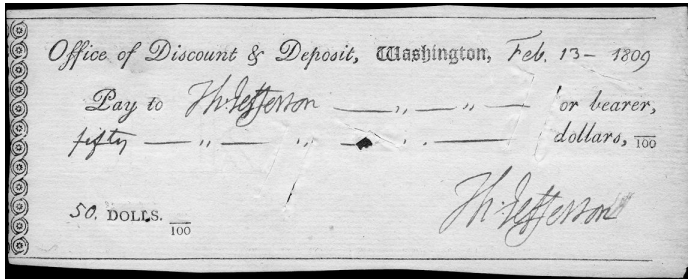 Office of Discount & Deposit, Washington, Feb. 13 - 1809
Pay to Th: Jefferson — „ — „ — or bearer,
fifty — „ — „ — „ — dollars, /100
50. DOLLS. /100
Th: Jefferson